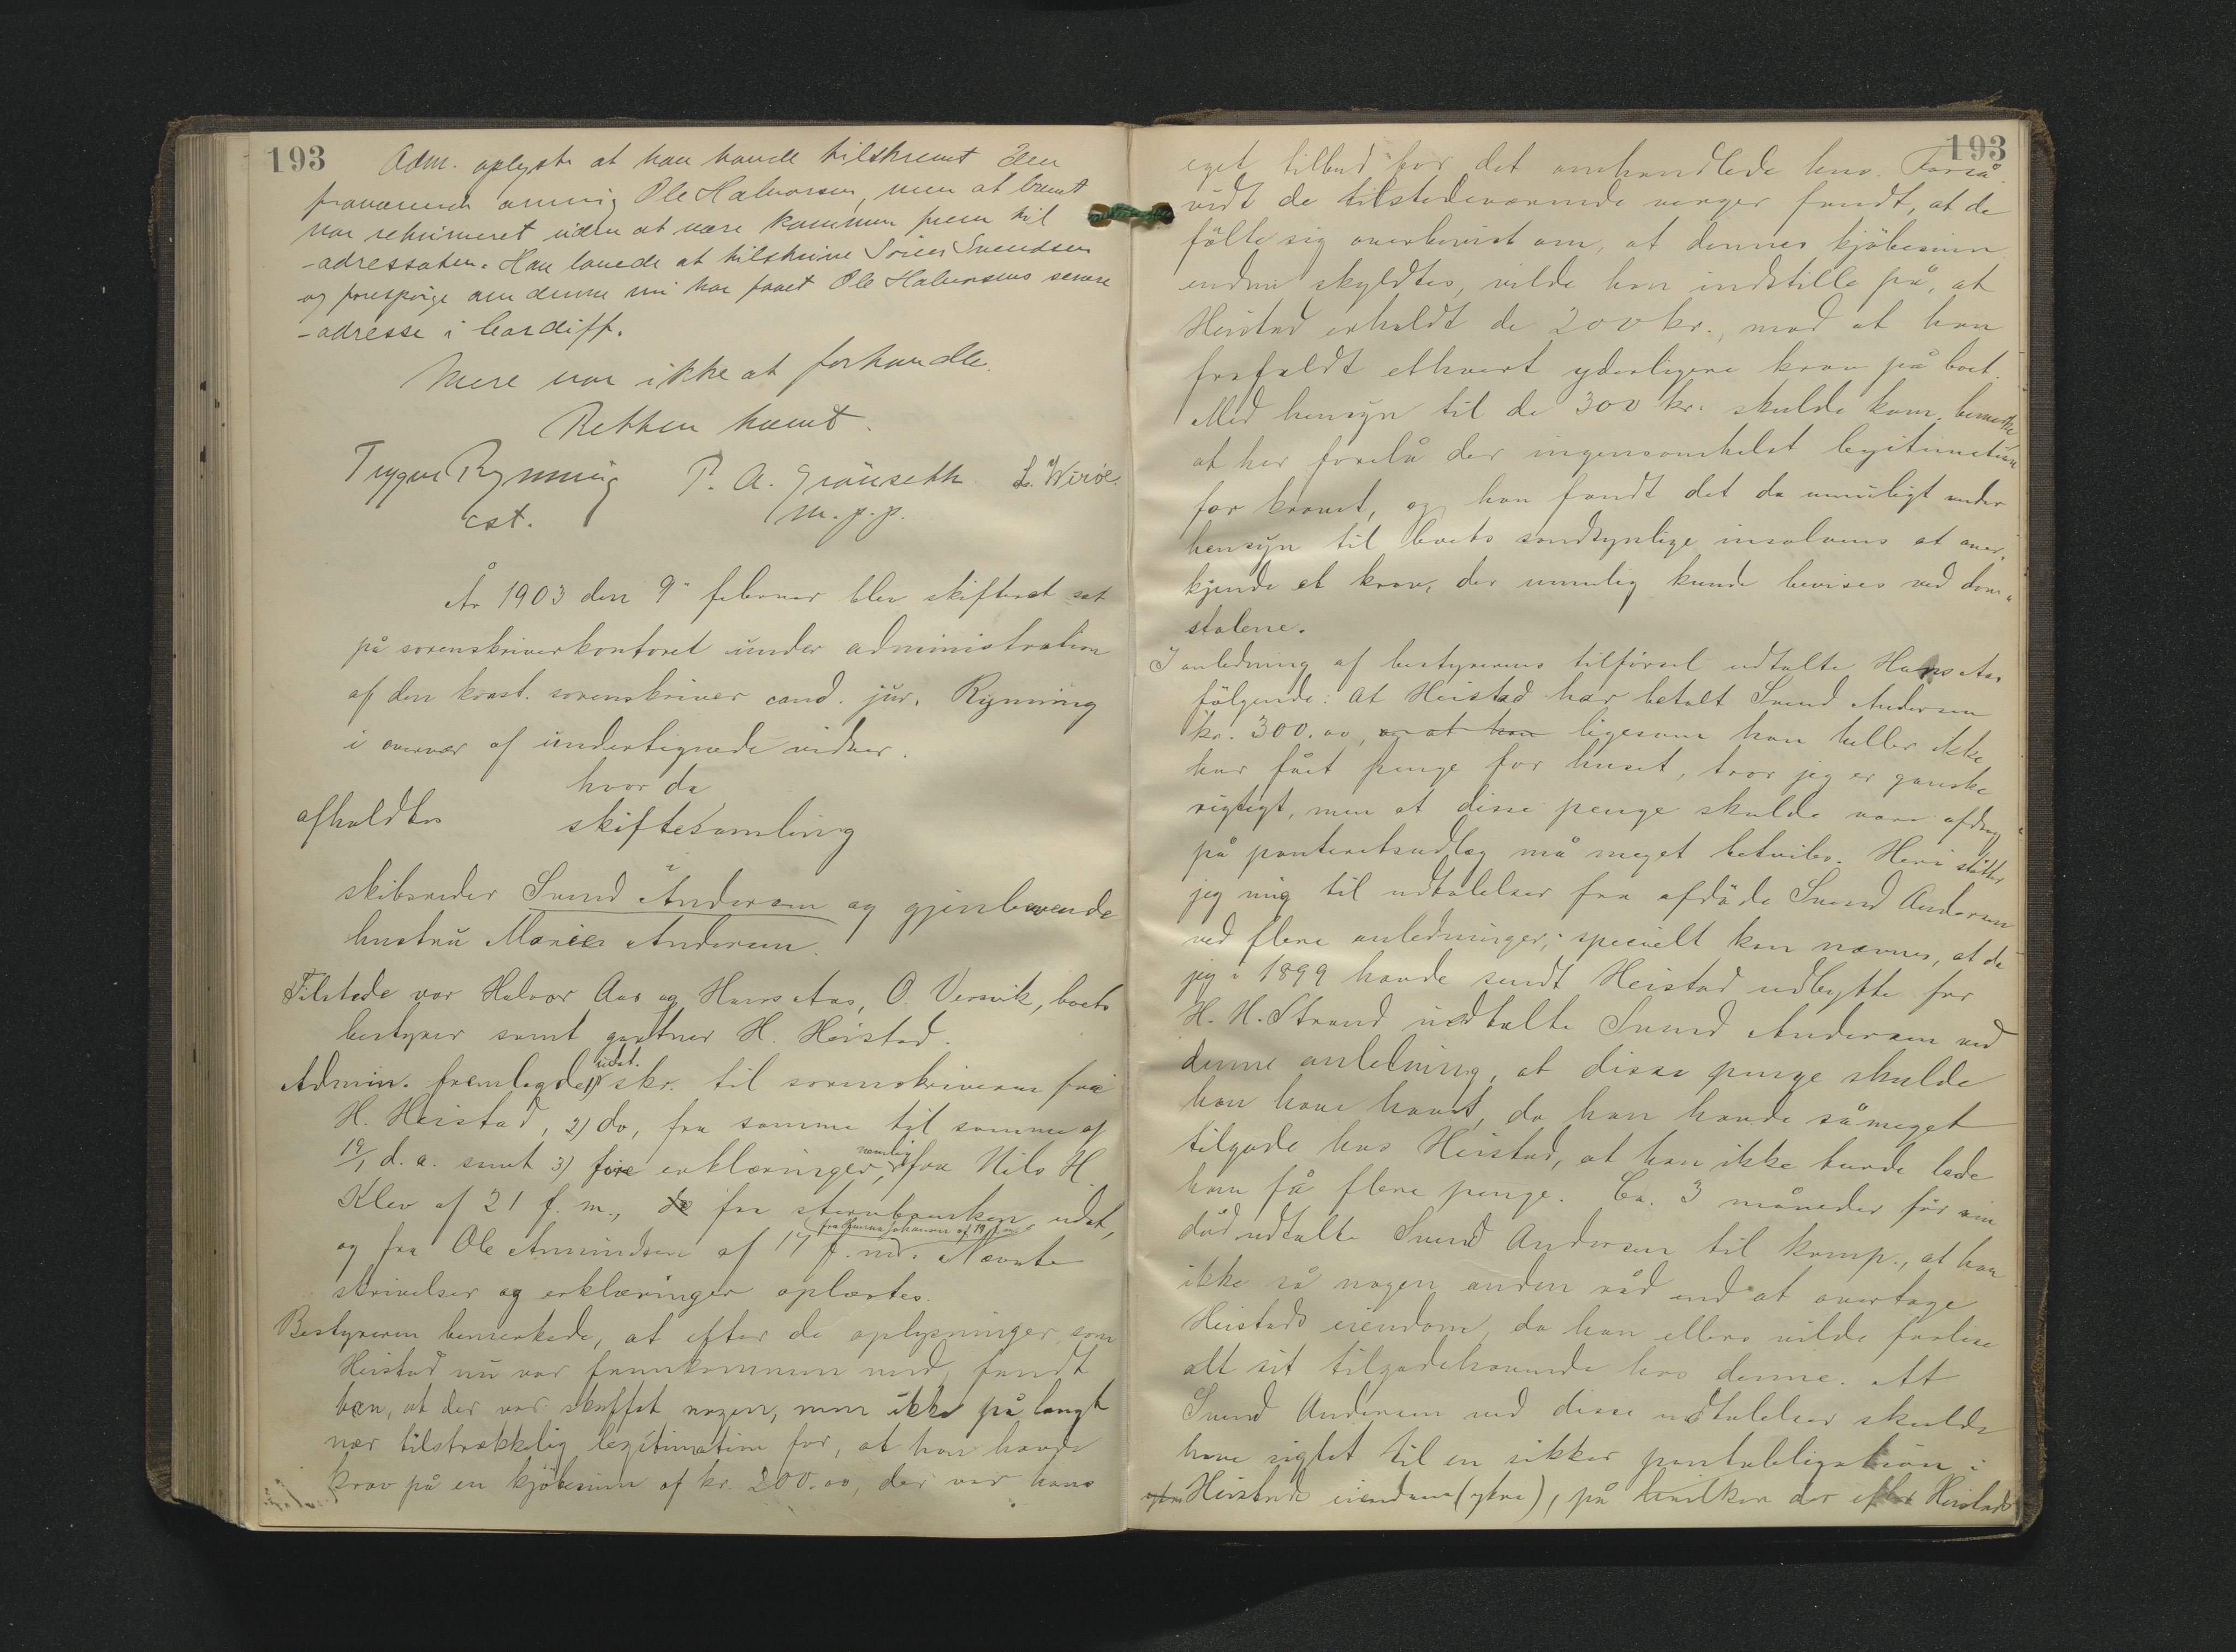 193
Adm. oplyste at han havde tilskrevet den
fraværende arving Ole Halvorsen, men at brevet
var returneret uden at være kommen frem til
adressaten. Han lovede at tilskrive Sören Svendsen
og forespørge om denne nu har faaet Ole Halvorsens senere
adresse i Cardiff.
Mere var ikke at forhandle.
Retten hævet.
Trygve Rynning P. A. Grönseth L. Wiröe.
cst. m.p.p.
År 1903 den 9de februar blev skifteret sat
på sorenskriverkontoret under administration
af den konst. sorenskriver cand. jur. Rynning
i overvær af undertegnede vidner.
hvor da
afholdtes skiftesamling i
skibsreder Svend Andersen og gjenlevende
hustru Maries Andersen.
Tilstede var Halvor Aas og Hans Aas, O. Versvik, boets
bestyrer samt gartner H. Heistad.
Admin. fremlagde 1) udat. skr. til sorenskriveren fra
H. Heistad, 2) do, fra samme til samme af
19/1 d.a. samt 3) fire erklæringer, nemlig fra Nils H.
Klev af 21 f.m., fra stervbanken udat,
fra Hanna Johansen af 19 f.m.
og fra Ole Amundsen af 17 f.md. Nævnte
skrivelser og erklæringer oplæstes.
Bestyreren bemerkede, at efter de oplysninger som
Heistad nu var fremkommen med, fandt
han, at der var skaffet nogen, men ikke på langt
nær tilstrækkelig legitimation for, at han havde
krav på en kjöbesum af kr. 200.00, der var hans
193
eget tilbud for det omhandlede hus. Forså-
vidt de tilstedeværende verger fandt, at de
fölte sig overbevist om, at dennes kjöbesum
endnu skyldtes, vilde han indstille på, at
Heistad erholdt de 200 kr., mod at han
frafaldt ethvert yderligere krav på boet.
Med hensyn til de 300 kr. skulde kom. bemerke,
at her forelå der ingensomhelst legitimation
for kravet, og han fandt det da umuligt under
hensyn til boets sandsynlige insolvens at aner-
kjende et krav, der umulig kunde bevises ved dom-
stolene.
I anledning af bestyrerens tilförsel udtalte Hans Aas
fölgende: At Heistad har betalt Svend Andersen
kr. 300.00, og at han ligesom han heller ikke
har fået penge for huset, tror jeg er ganske
rigtigt, men at disse penge skulde være afdrag
på panteretsudlæg må meget betviles. Heri stötter
jeg mig til udtalelser fra afdöde Svend Andersen
ved flere anledninger; specielt kan nævnes, at da
jeg i 1899 havde sendt Heistad udbytte for
H. H. Strand udtalte Svend Andersen ved
denne anledning, at disse penge skulde
han have havt, da han havde såmeget
tilgode hos Heistad, at han ikke burde lade
ham få flere penge. Ca. 3 måneder för sin
död udtalte Svend Andersen til komp., at han
ikke så nogen anden råd end at overtage
Heistads eiendom, da han ellers vilde forlise
alt sit tilgodehavende hos denne. At
Svend Andersen ved disse udtalelser skulde
have sigtet til en sikker pantobligation i
Heistads eiendom (ytre), på hvilken der efter Heistads